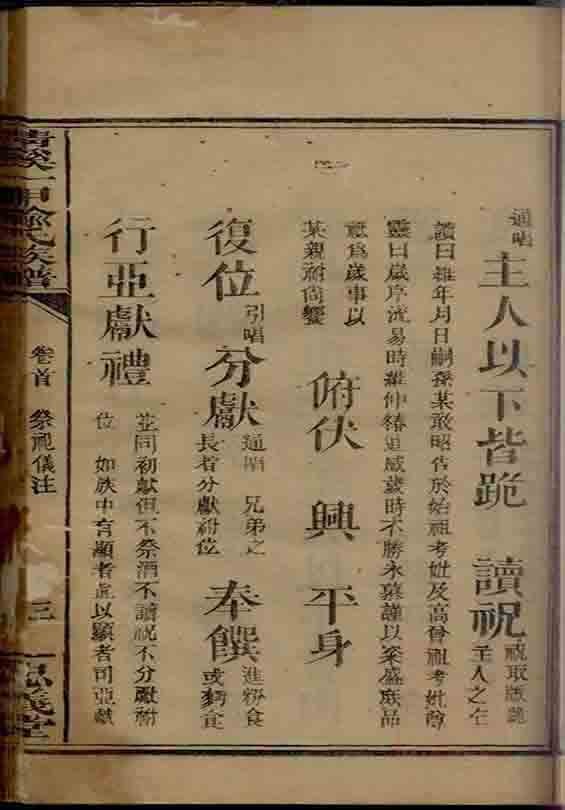 通唱 主人以下皆跪 讀祝 祝取版跪主人之左
讀曰維年月日嗣孫某敢昭告於始祖考妣及高曾祖考妣尊
靈曰歲序流易時維仲春追感歲時不勝永慕謹以粢盛庶品
祗爲歲事以
某親祔尚饗
俯伏 興 平身
復位 引唱 分獻 通唱 兄弟之長者分獻祔位 奉饌 進粉食或麪食
行亞獻禮 並同初獻但不祭酒不讀祝不分獻祔位 如族中有顯者宜以顯者司亞獻
清溪一甲氏族譜
卷首 祭祝儀注
三
忠義堂